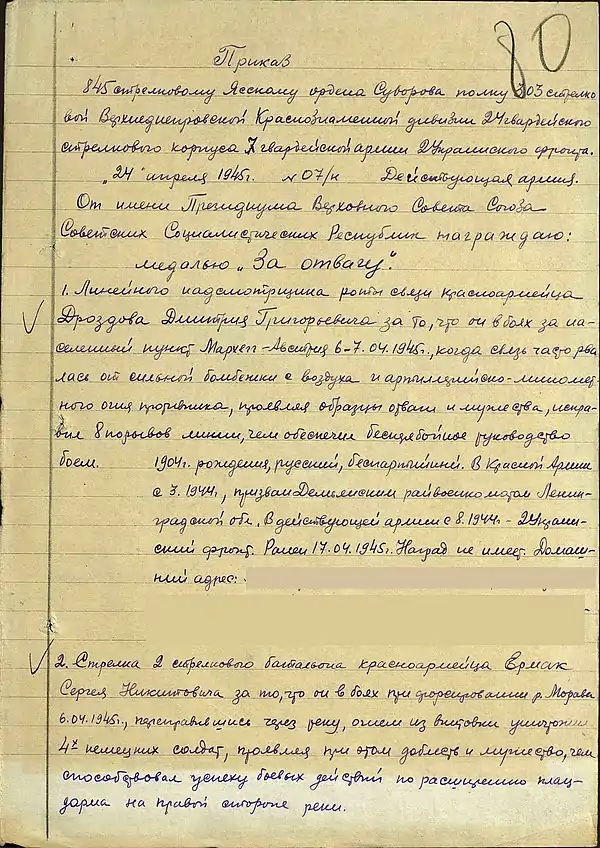 80
Приказ
845 стрелковому Ясскому ордена Суворова полку 303 стрелко
вой Верхнеднепровской Краснознаменной дивизии 24 гвардейского
стрелкового корпуса 7 гвардейской армии 2 Украинского фронта.
„24" апреля 1945г. №07/н Действующая армия.
От имени Президиума Верховного Совета Союза
Советских Социалистических Республик награждаю:
медалью „За отвагу".
1. Линейного надсмотрщика роты связи красноармейца
Дроздова Дмитрия Григорьевича за то, что он в боях за на-
селенный пункт Мархегг-Австрия 6-7.04.1945г., когда связь часто рва
лась от сильной бомбежки с воздуха и артиллерийско-миномет
ного огня противника, проявляя образцы отваги и мужества, испра
вил 8 порывов линии, чем обеспечил бесперебойное руководство
боем.
1904г. рождения, русский, беспартийный. В Красной Армии
с 3.1944г., призван Демьянским райвоенкоматом Ленин-
градской обл. В действующей армии с 8.1944г. - 2 Украин-
ский фронт. Ранен 17.04.1945г. Наград не имеет. Домаш-
ний адрес:
2. Стрелка 2 стрелкового батальона красноармейца Ермак
Сергея Никитовича за то, что он в боях при форсировании р. Морава
6.04.1945г., переправившись через реку, огнем из винтовки уничтожил
4х немецких солдат, проявляя при этом доблесть и мужество, чем
способствовал успеху боевых действий по расширению плац-
дарма на правой стороне реки.